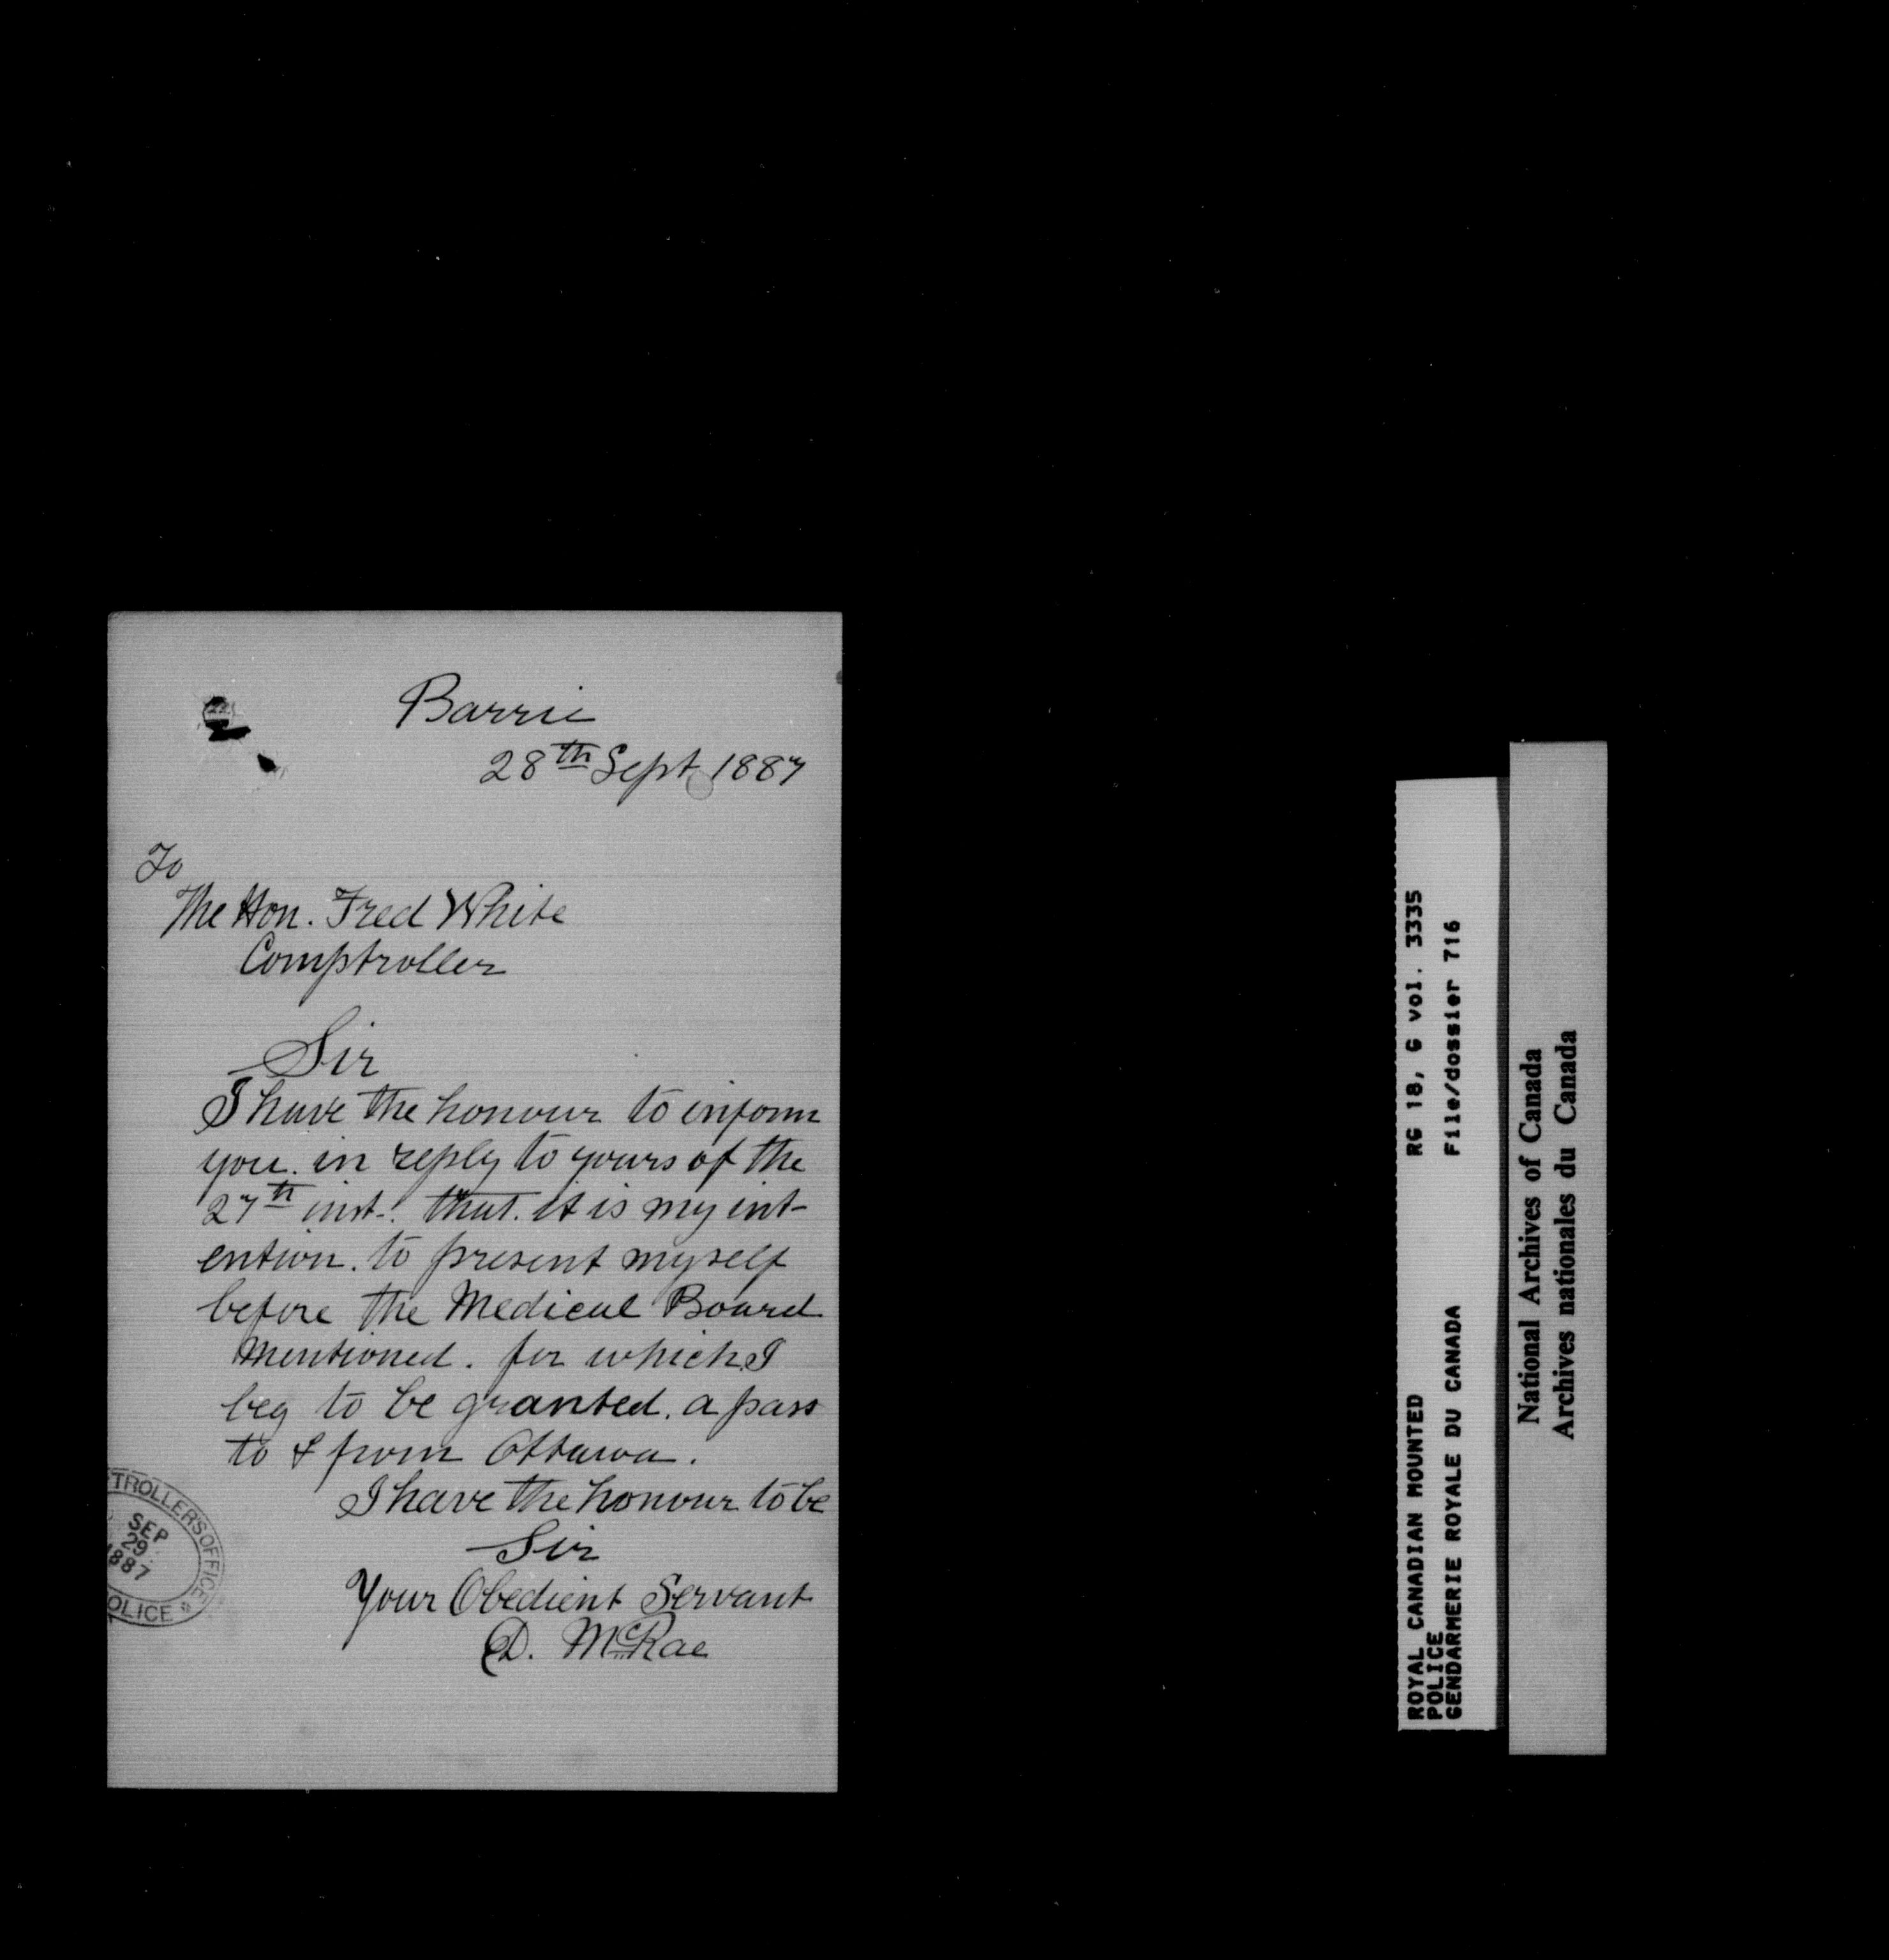 Barrie
28th Sept. 1887
To
The Hon. Fred White
Comptroller
Sir
I have the honour to inform
you. in reply to yours of the
27th inst. that. it is my int-
ention. to present myself
before the Medical Board
mentioned. for which I
beg to be granted. a pass
to & from Ottawa.
I have the honour to be
Sir
Your Obedient Servant
D. McRae
TROLLER'S OFFICE
SEP
29
1887
OLICE
ROYAL CANADIAN MOUNTED RG 18, G vol. 3335
POLICE
GENDARMERIE ROYALE DU CANADA File/dossier 716
National Archives of Canada
Archives nationales du Canada